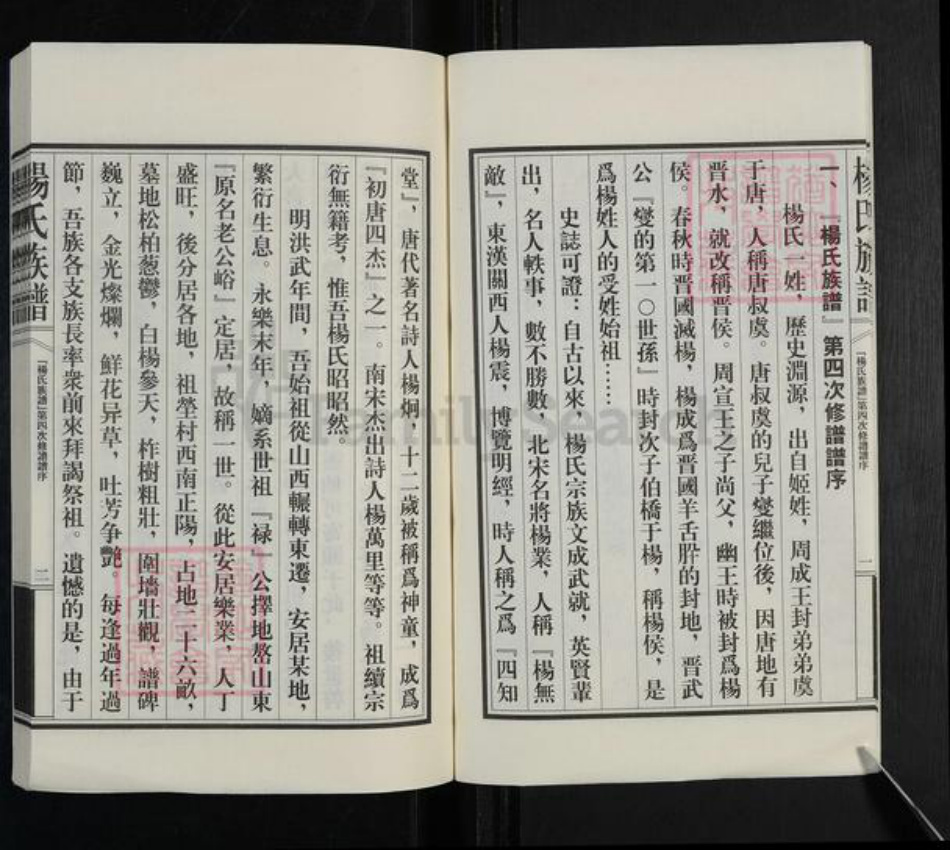 一、『楊氏族譜』第四次修譜譜序
楊氏一姓，歷史淵源，出自姬姓，周成王封弟弟虞
于唐，人稱唐叔虞。唐叔虞的兒子燮繼位後，因唐地有
晋水，就改稱晋侯。周宣王之子尚父，幽王時被封爲楊
侯。春秋時晋國滅楊，楊成爲晋國羊舌肸的封地，晋武
公『燮的第一〇世孫』時封次子伯橋于楊，稱楊侯，是
爲楊姓人的受姓始祖……
史誌可證：自古以來，楊氏宗族文成武就，英賢輩
出，名人軼事，數不勝數，北宋名將楊業，人稱『楊無
敵』，東漢關西人楊震，博覽明經，時人稱之爲『四知
楊氏族譜
『楊氏族譜』第四次修譜譜序
一
堂』，唐代著名詩人楊炯，十二歲被稱爲神童，成爲
『初唐四杰』之一。南宋杰出詩人楊萬里等等。祖續宗
衍無籍考，惟吾楊氏昭昭然。
明洪武年間，吾始祖從山西輾轉東遷，安居某地，
繁衍生息。永樂末年，嫡系世祖『禄』公擇地嶅山東
『原名老公峪』定居，故稱一世。從此安居樂業，人丁
盛旺，後分居各地，祖塋村西南正陽，占地二十六畝，
墓地松柏葱鬱，白楊參天，柞樹粗壯，圍墻壯觀，譜碑
巍立，金光燦爛，鮮花异草，吐芳争艷。每逢過年過
節，吾族各支族長率衆前來拜謁祭祖。遺憾的是，由于
楊氏族譜
『楊氏族譜』第四次修譜譜序
二
FamilySearch